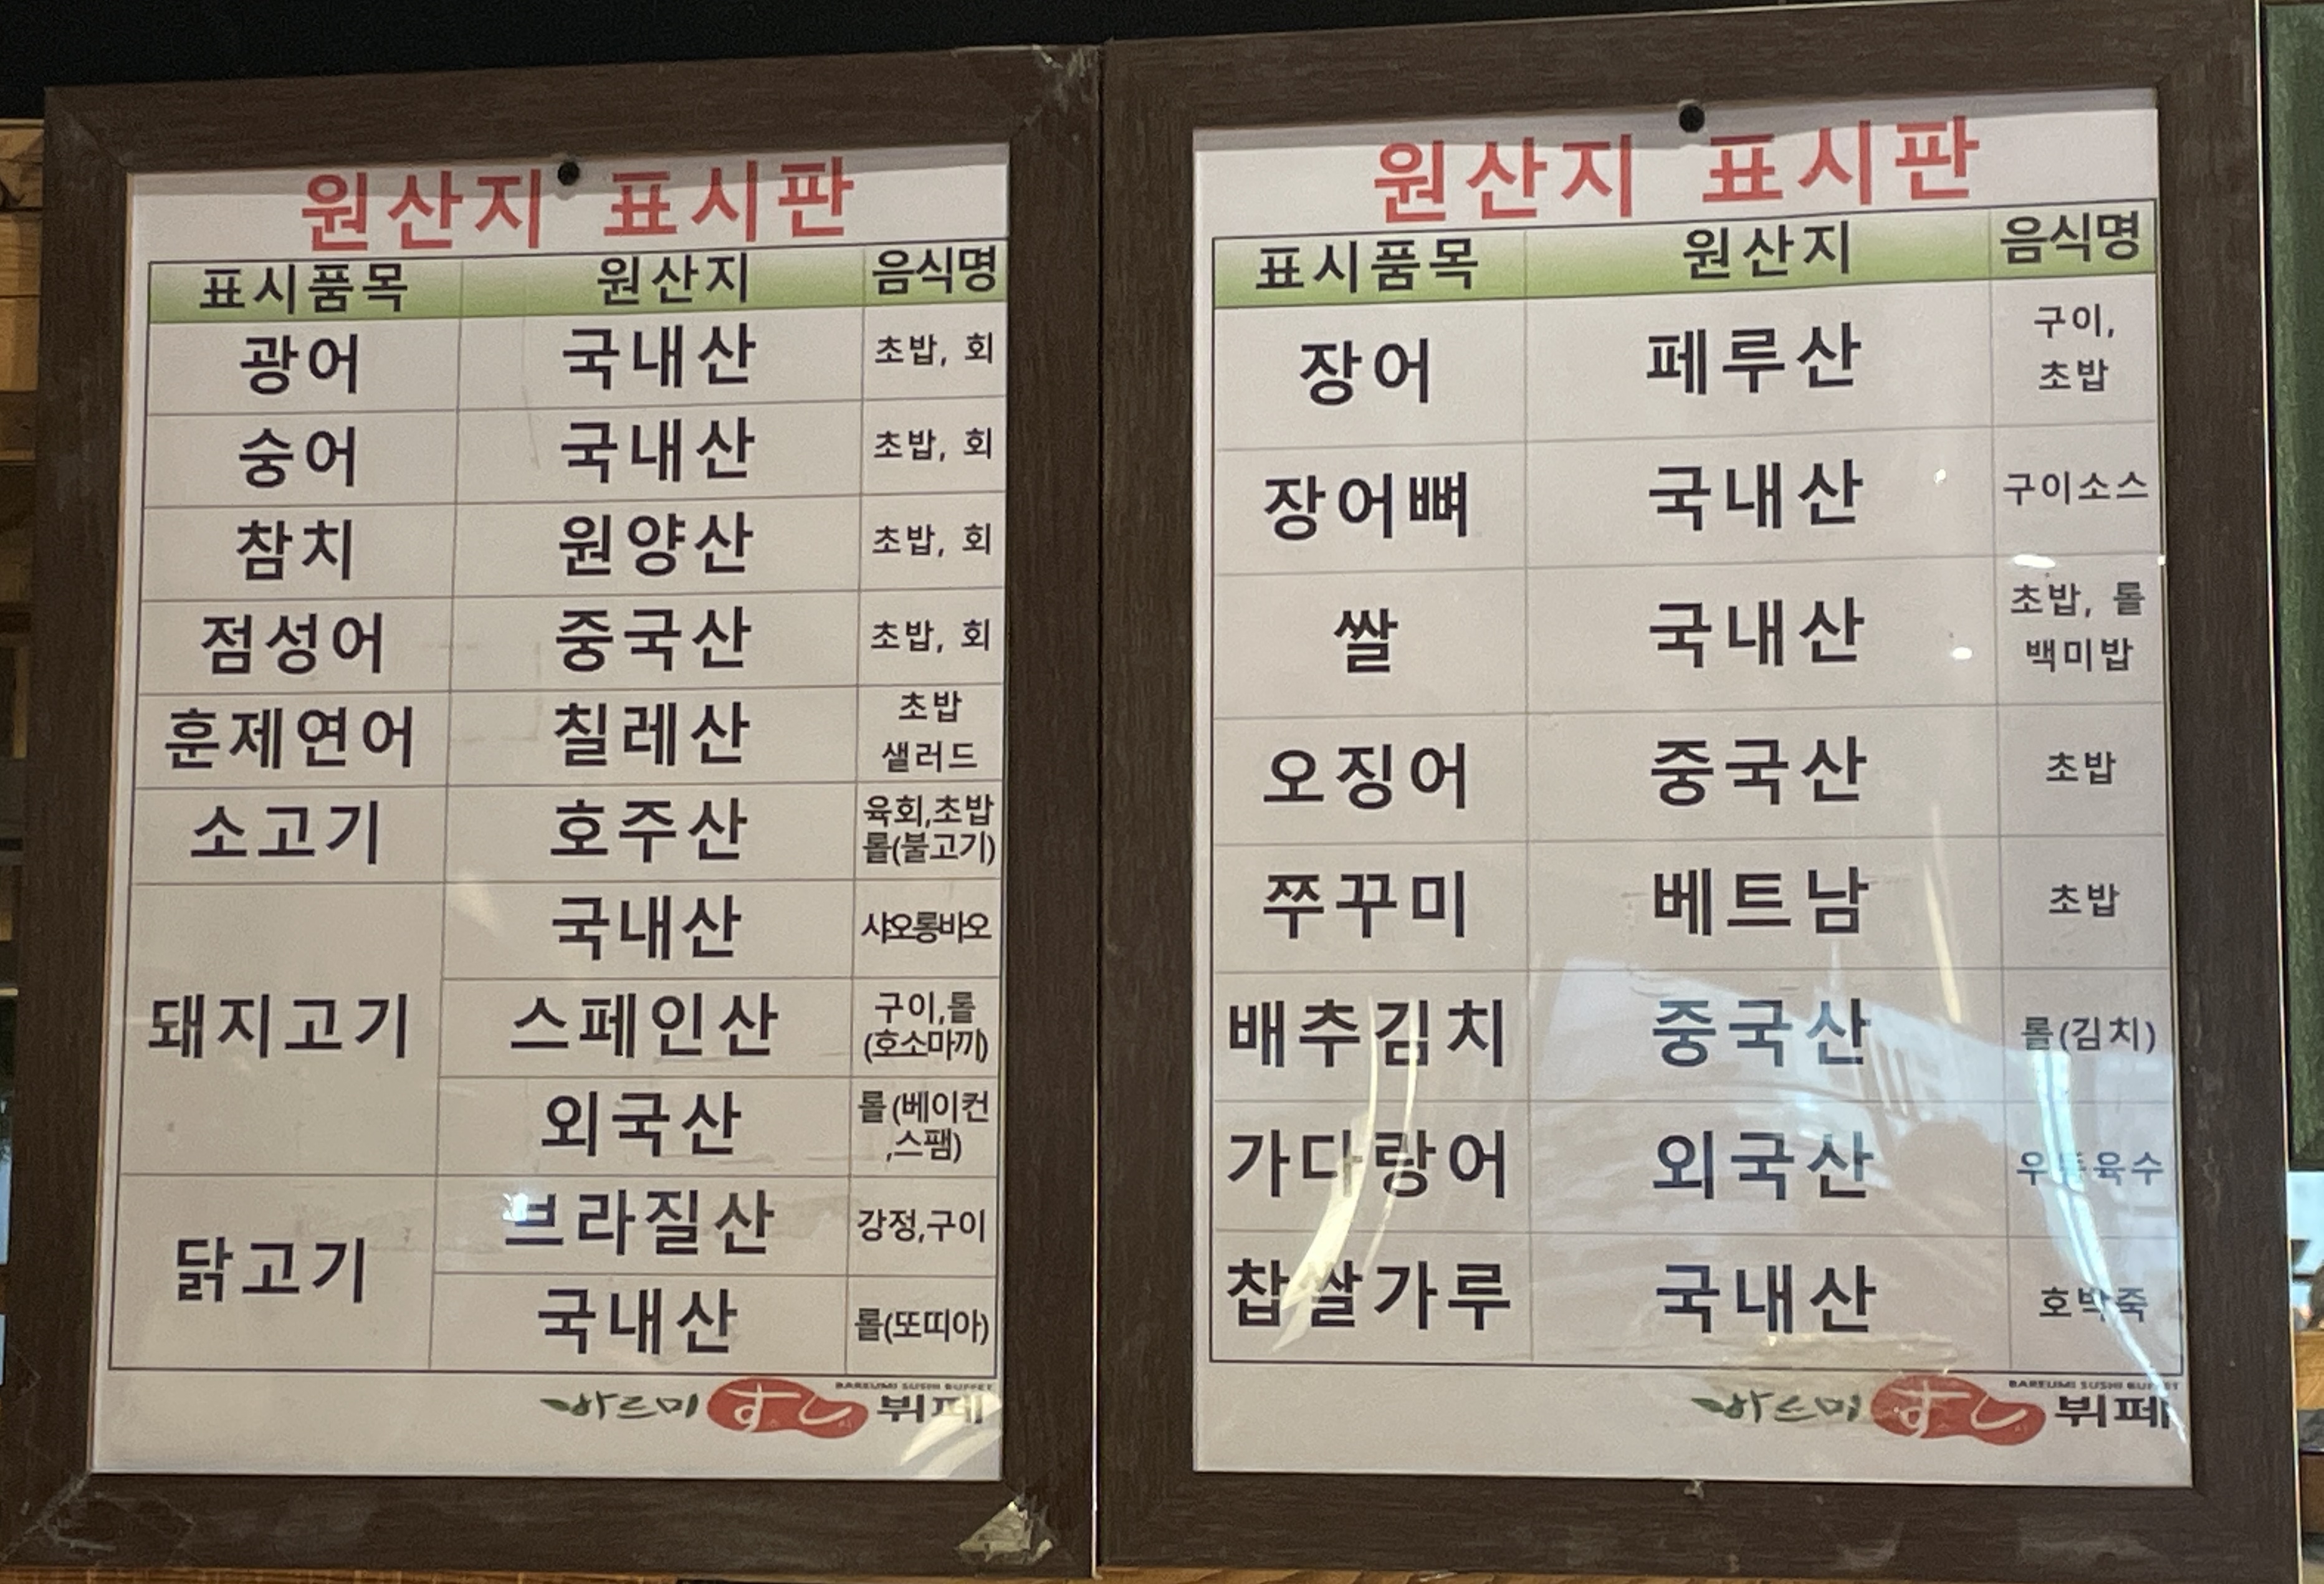 원산지 표시판
표시품목 원산지 음식명
광어 국내산 초밥, 회
숭어 국내산 초밥, 회
참치 원양산 초밥, 회
점성어 중국산 초밥, 회
훈제연어 칠레산 초밥
샐러드
소고기 호주산 육회,초밥
롤(불고기)
돼지고기
국내산 샤오롱바오
스페인산 구이,롤
(호소마끼)
외국산 롤(베이컨
,스팸)
닭고기
브라질산 강정,구이
국내산 롤(또띠아)
BAREUMI SUSHI BUFFET
바르미 すし 뷔페
원산지 표시판
표시품목 원산지 음식명
장어 페루산 구이,
초밥
장어뼈 국내산 구이소스
쌀 국내산 초밥, 롤
백미밥
오징어 중국산 초밥
쭈꾸미 베트남 초밥
배추김치 중국산 롤(김치)
가다랑어 외국산 우동육수
찹쌀가루 국내산 호박죽
BAREUMI SUSHI BUFFET
바르미 すし 뷔페